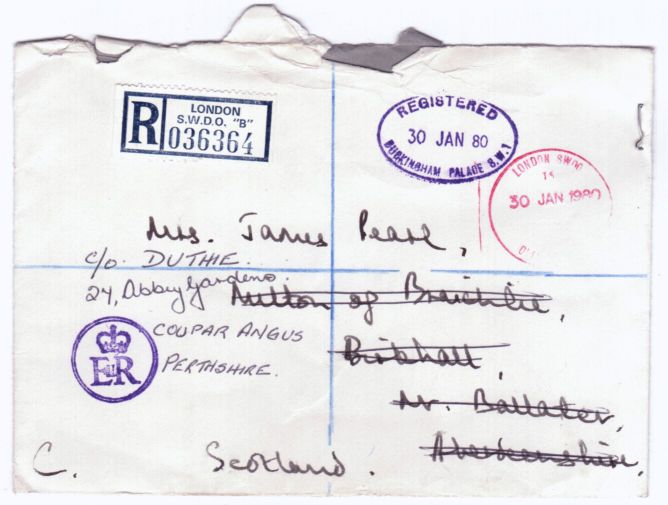 R
LONDON
S.W.D.O. "B"
036364
REGISTERED
30 JAN 80
BUCKINGHAM PALACE S.W.1
LONDON SWDO
30 JAN 1980
Mrs. James Pearl,
c/o. DUTHIE.
24, Abbey Gardens.
of
COUPAR ANGUS
Birkhall,
PERTHSHIRE.
EIIR
Nr. Ballater,
Aberdeenshire,
C.
Scotland.